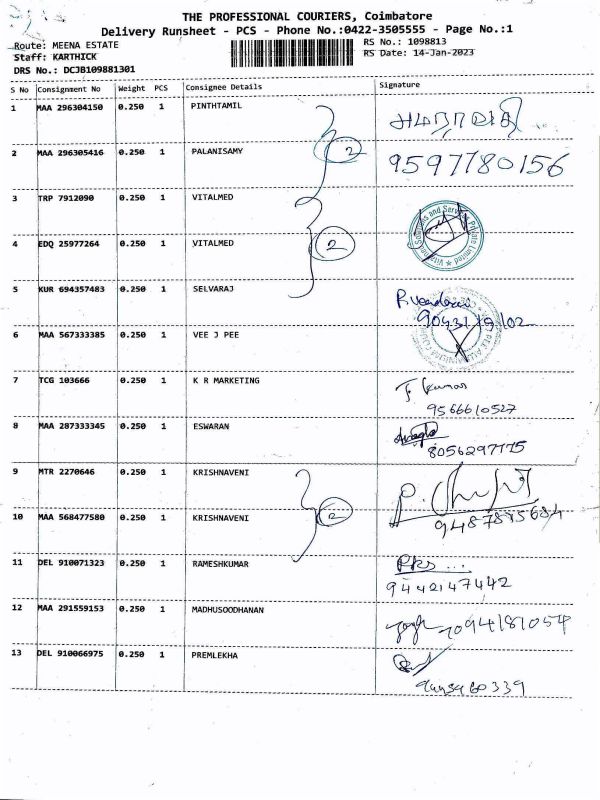 THE PROFESSIONAL COURIERS, Coimbatore
Delivery Runsheet - PCS - Phone No.:0422-3505555 - Page No.:1
Route: MEENA ESTATE RS No.: 1098813
Staff: KARTHICK RS Date: 14-Jan-2023
DRS No.: DCJB109881301
S No Consignment No Weight PCS Consignee Details Signature
1 MAA 296304150 0.250 1 PINTHTAMIL
2 MAA 296305416 0.250 1 PALANISAMY 2 9597780156
3 TRP 7912090 0.250 1 VITALMED
4 EDQ 25977264 0.250 1 VITALMED 2
5 KUR 694357483 0.250 1 SELVARAJ
6 MAA 567333385 0.250 1 VEE J PEE
7 TCG 103666 0.250 1 K R MARKETING
9566610527
8 MAA 287333345 0.250 1 ESWARAN
8056297775
9 MTR 2270646 0.250 1 KRISHNAVENI
10 MAA 568477580 0.250 1 KRISHNAVENI 2
11 DEL 910071323 0.250 1 RAMESHKUMAR
9442147442
12 MAA 291559153 0.250 1 MADHUSOODHANAN
13 DEL 910066975 0.250 1 PREMLEKHA